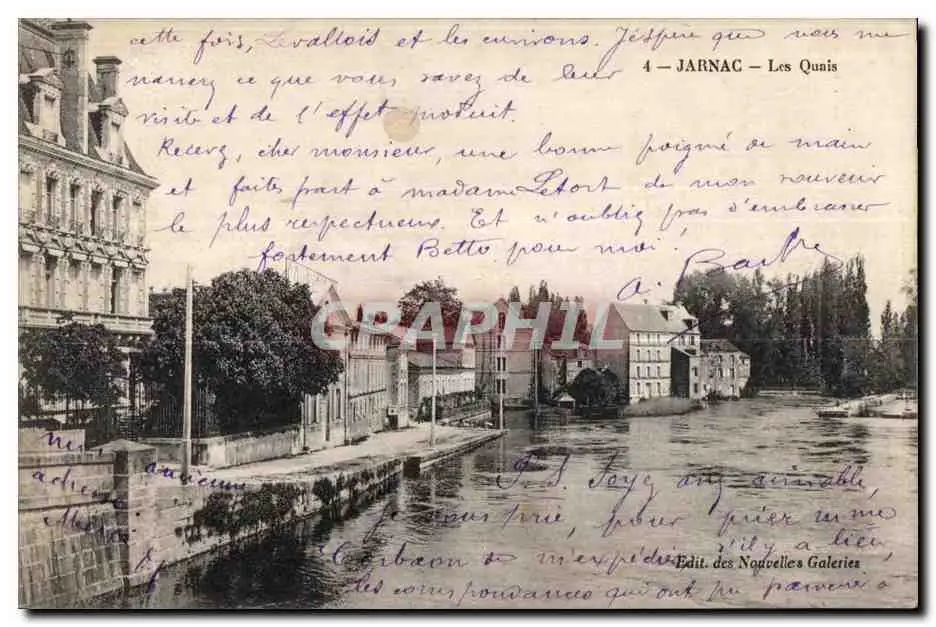 cette fois, Levallois et les environs. J'espère que vous me
narrerz ce que vous savez de leur
4 — JARNAC — Les Quais
visite et de l'effet produit.
Recevez, cher monsieur, une bonne poigné de main
et faites part à madame Letort de mon souvenir
le plus respectueux. Et n'oubliez pas d'embrasser
fortement Betto pour moi.
a. Barthe
CPARPHIL.COM
P.S. Soyez assez aimable,
je vous prie, pour prier mme
Corbaon de m'expédier s'il y a lieu,
Edit. des Nouvelles Galeries
les correspondances qui ont pu parvenir à
mon ancienne
adresse